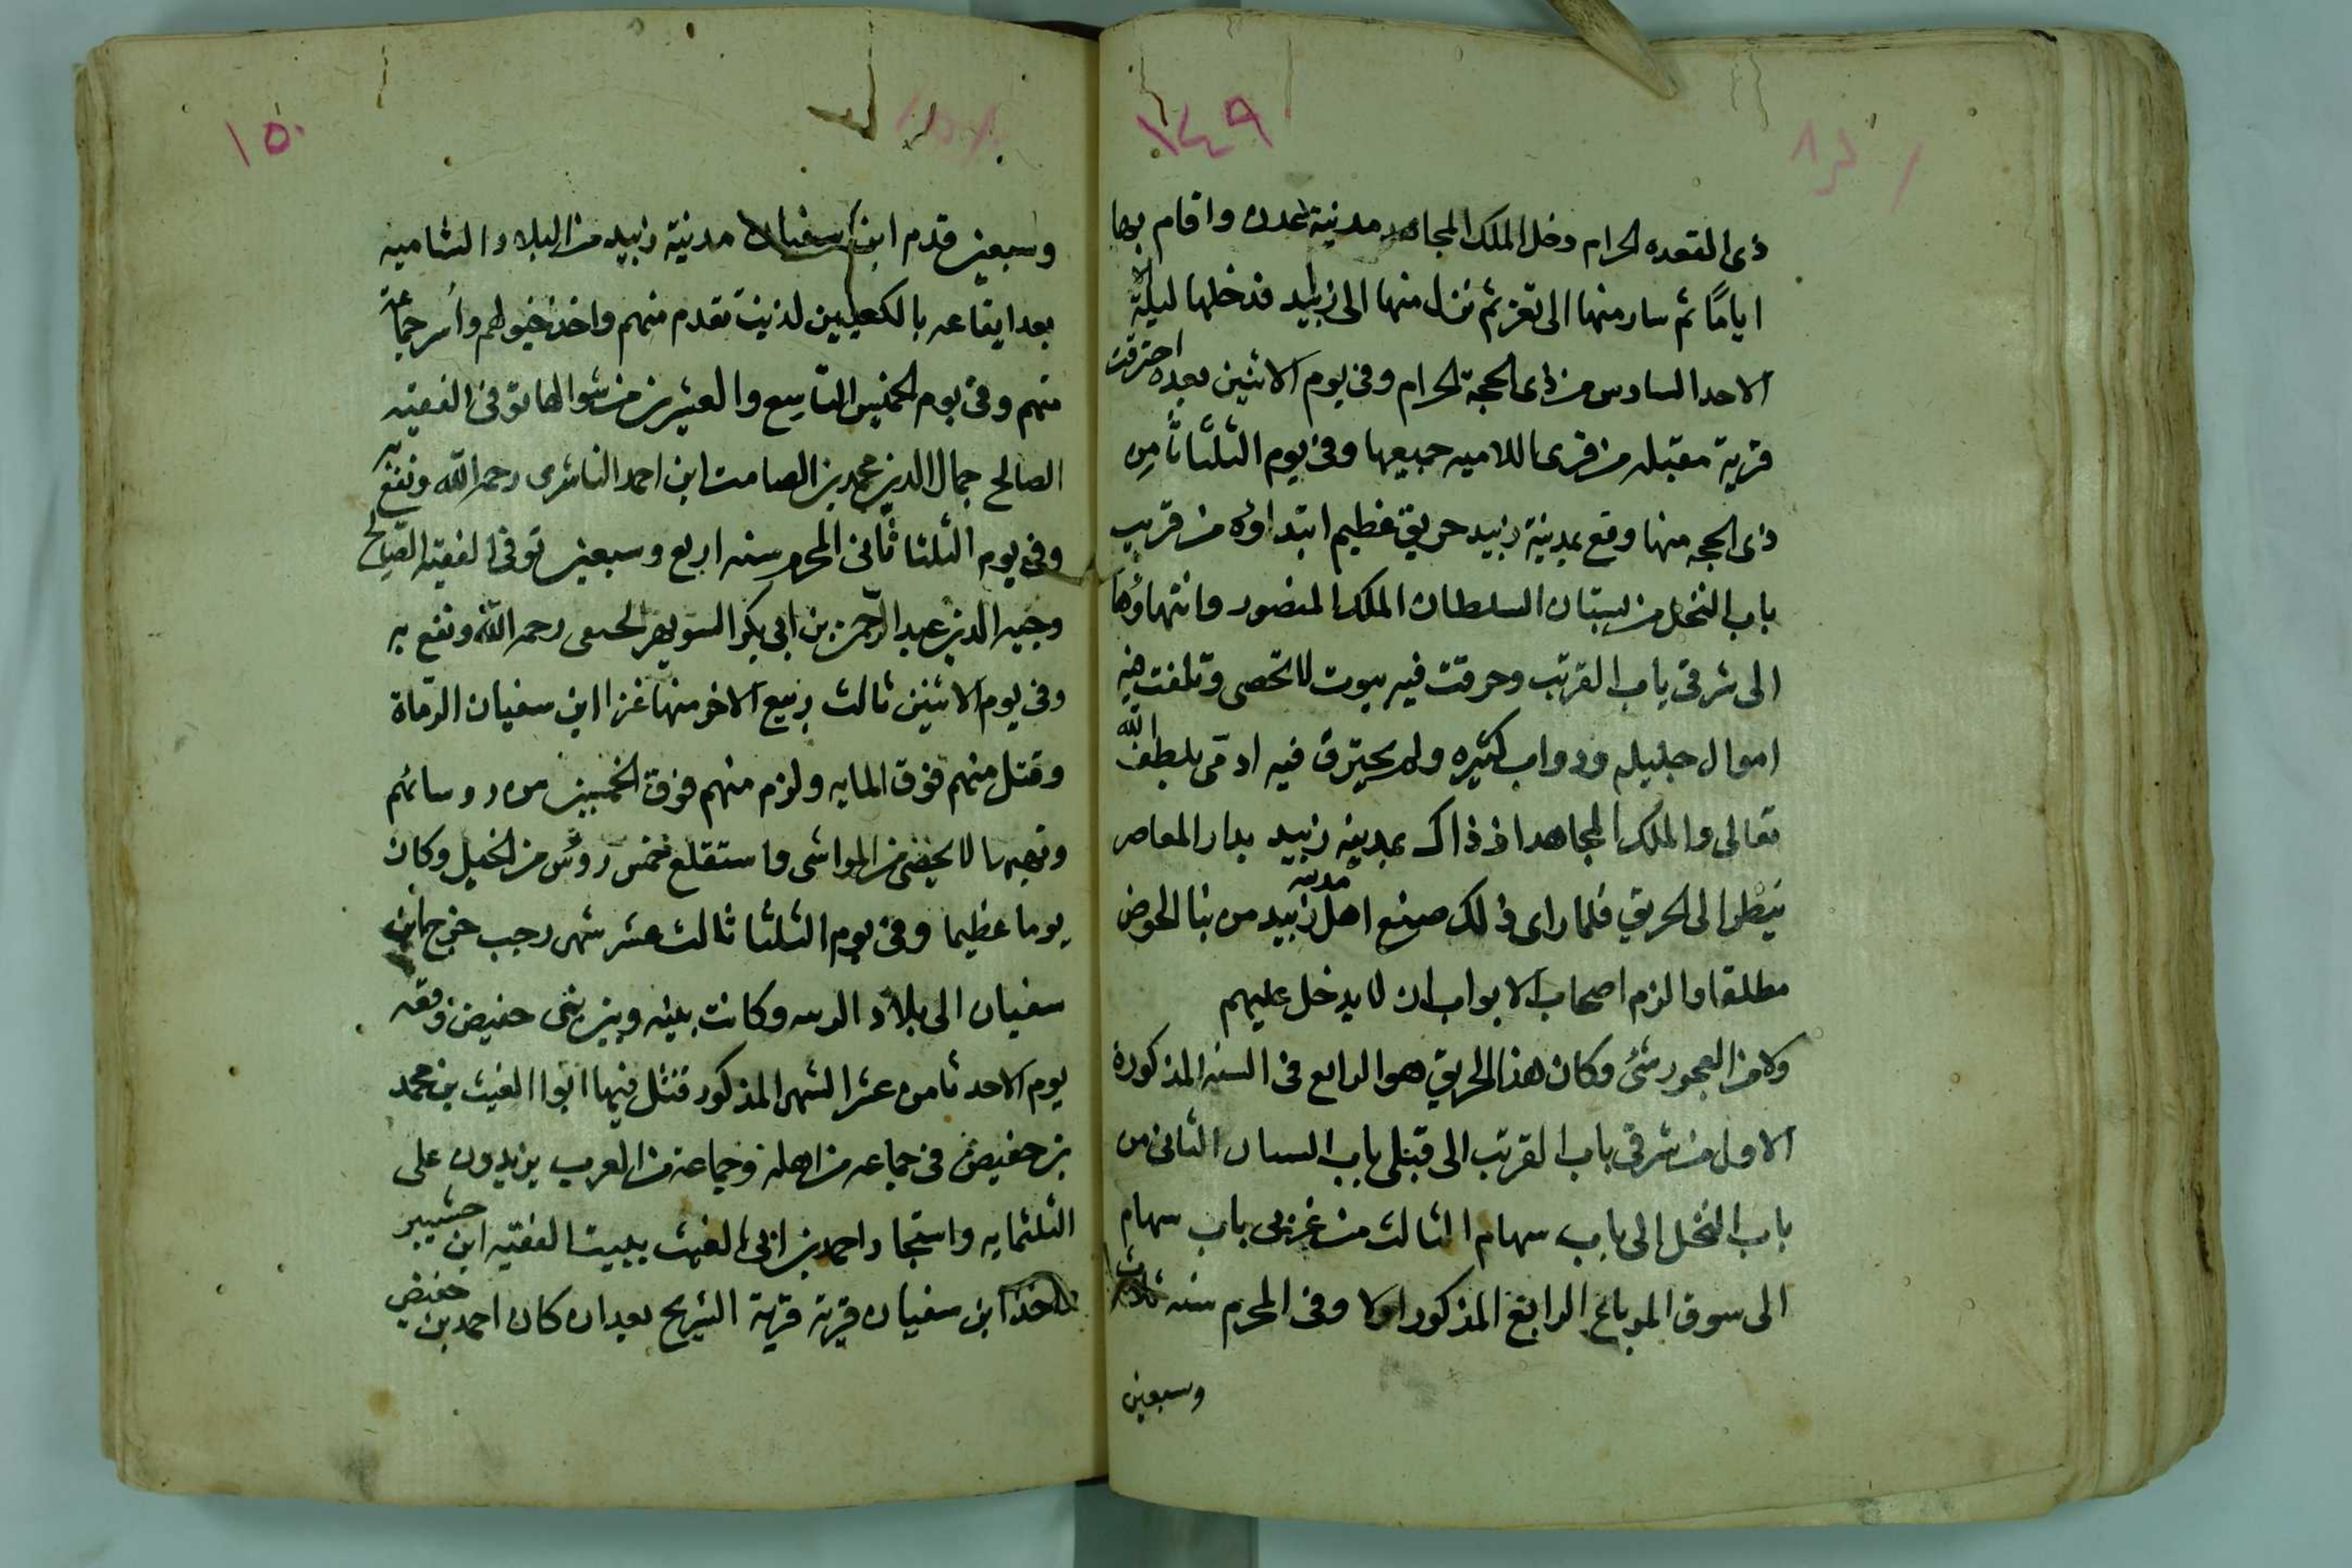 ١٤٩
ذى القعده الحرام دخل الملك المجاهد مدينة عدن واقام بها
اياما ثم سار منها الى تعز ثم نزل منها الى زبيد فدخلها ليلة
الاحد السادس من ذى الحجة الحرام وفى يوم الاثنين بعده احترقت
قرية مقبله من قرى اللاميه جميعها وفى يوم الثلثا ثامن
ذى الحجه منها وقع بمدينة زبيد حريق عظيم ابتداوه من قريب
باب النخل من بستان السلطان الملك المنصور وانتهاؤها
الى شرقى باب القرتب وحرقت فيه بيوت لا تحصى وتلفت فيه
اموال جليله ودواب كثيره ولم يحترق فيه ادمى بلطف الله
تعالى والملك المجاهد اذ ذاك بمدينة زبيد بدار المعاصر
ينظر الى الحريق فلما راى ذلك منع اهل مدينه زبيد من بنا الخوص
مطلقا والزم اصحاب الابواب ان لا يدخل عليهم
ولا من العجور شئ وكان هذا الحريق هو الرابع فى السنه المذكورة
الاول من شرقى باب القرتب الى قبلى باب السباق الثانى من
باب النخل الى باب سهام الثالث من غربى باب سهام
الى سوق المرباع الرابع المذكور اولا وفى المحرم سنه ثلاث
وسبعين
١٥٠
وسبعين قدم ابن سفيان مدينة زبيد من البلاد الشاميه
بعد ايقاعه بالكعبيين لذنب تقدم منهم واخذ خيولهم وأسر جماعة
منهم وفى يوم الخميس التاسع والعشرين من شوالها توفى الفقيه
الصالح جمال الدين محمد بن الصامت ابن احمد الناشرى رحمه الله ونفع به
وفى يوم الثلثا ثانى المحرم سنه اربع وسبعين توفى الفقيه الصالح
وجيه الدين عبد الرحمن بن ابى بكر السويهر الحنفى رحمه الله ونفع به
وفى يوم الاثنين ثالث ربيع الاخر منها غزا ابن سفيان الرماة
وقتل منهم فوق المايه ولزم منهم فوق الخمسين من روسائهم
ونهب ما لا يحصى من المواشى واستقلع خمس رؤس من الخيل وكان
يوما عظيما وفى يوم الثلثا ثالث عشر شهر رجب خرج ابن
سفيان الى بلاد وكانت بينه وبين بنى حفيص وقعه
يوم الاحد ثامن عشر الشهر المذكور قتل فيها ابوا الغيث بن محمد
بن حفيص فى جماعه من اهله وجماعة من العرب يزيدون على
الثلثمايه واستجار احمد بن ابى الغيث ببيت الفقيه ابن حشيبر
فاخذ ابن سفيان قرية قرية الشريح بعد ان كان احمد بن حفيص